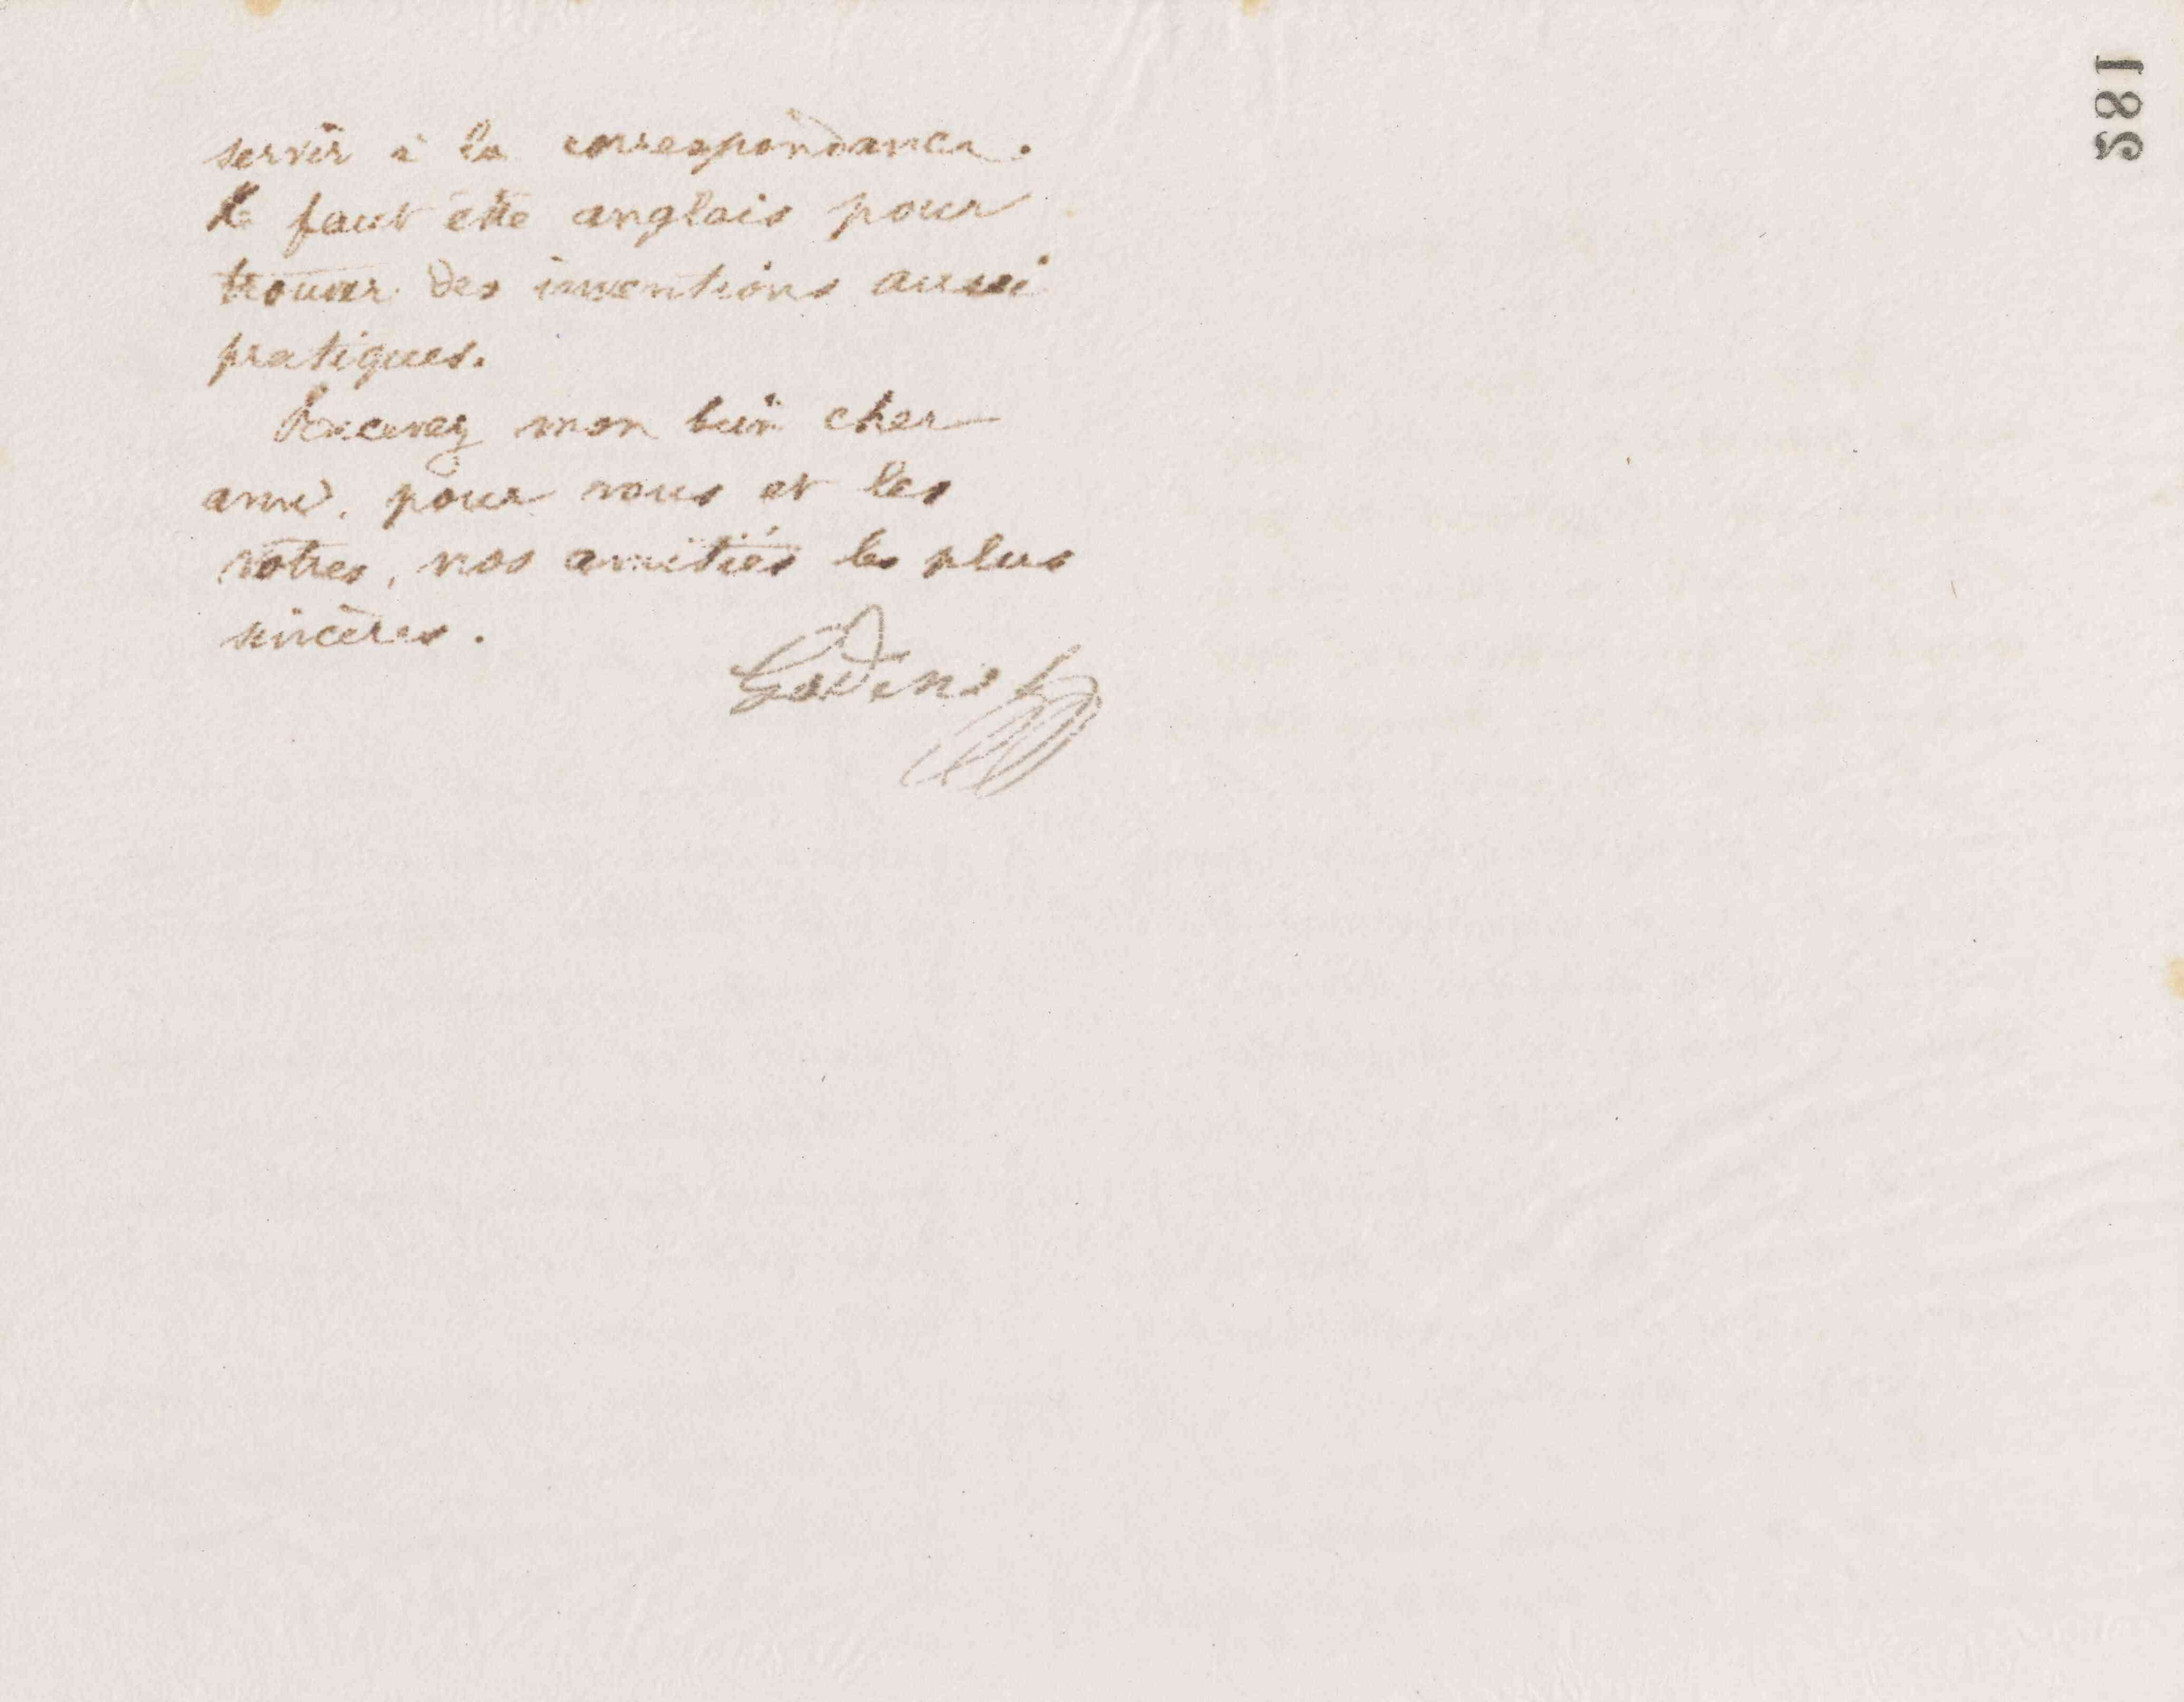 servir à la correspondance.
Il faut être anglais pour
trouver des inventions aussi
pratiques.
Recevez mon bien cher
ami, pour vous et les
vôtres, nos amitiés les plus
sincères.
Godin
185